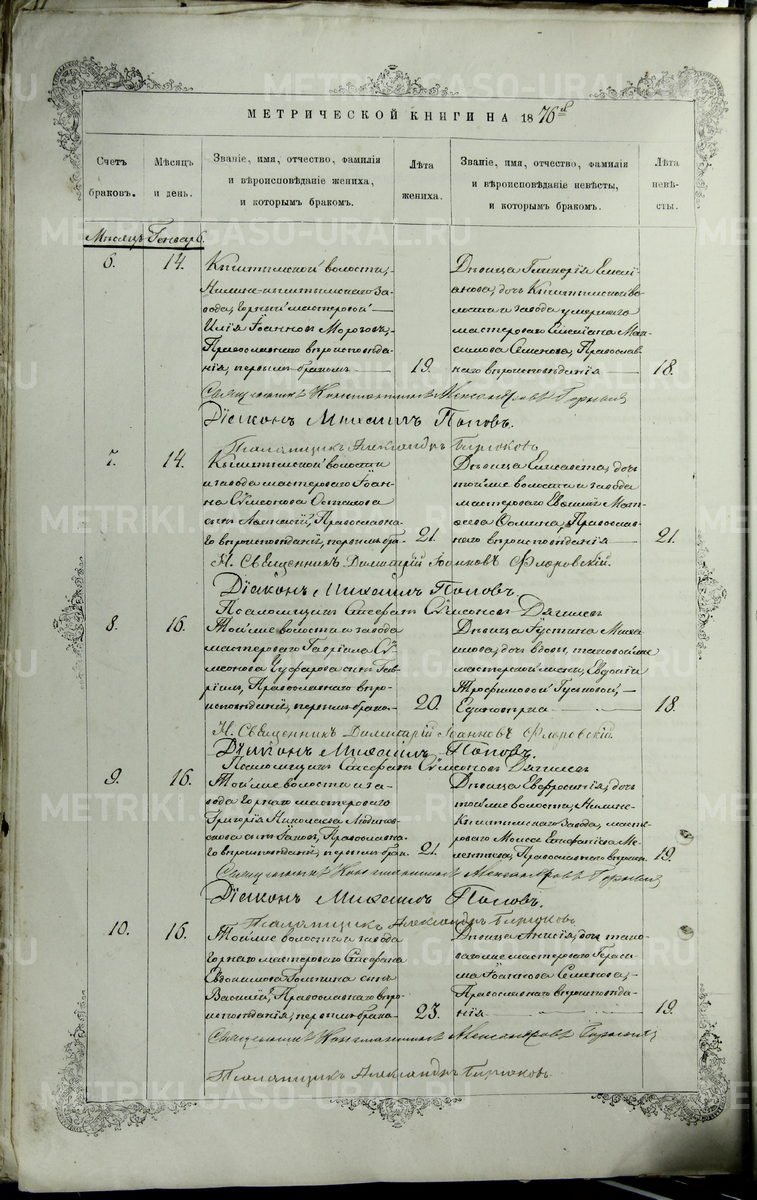 МЕТРИЧЕСКОЙ КНИГИ НА 1876й
Счетъ браковъ.
Мѣсяцъ и день.
Званіе, имя, отчество, фамилія
и вѣроисповѣданіе жениха,
и которымъ бракомъ.
Лѣта жениха.
Званіе, имя, отчество, фамилія
и вѣроисповѣданіе невѣсты,
и которымъ бракомъ.
Лѣта невѣсты.
Мѣсяцъ Генварь.
6.
14.
Кыштымской волости,
Нижне-кыштымскаго За-
вода, Горный мастеровой
Илія Іоанновъ Морозовъ,
Православнаго вѣроисповѣда-
нія, первымъ бракомъ
19.
Дѣвица Гликерія Емелі-
анова, дочь Кыштымской во-
лости и завода умершаго
мастероваго Емеліана Мак-
симова Семенова, Православ-
наго вѣроисповѣданія
18.
Священникъ Константинъ Александровъ
Діаконъ Михаилъ Поповъ.
Псаломщикъ Александръ Бирюковъ
7.
14.
Кыштымской волости
и завода мастероваго Іоан-
на Сѵмеонова
сынъ Православна-
го вѣроисповѣданія, первымъ бра-
21.
Дѣвица Елисавета, дочь
той же волости и завода
мастероваго Евѳимія Мат-
ѳеева Ѳомина, Православ-
наго вѣроисповѣданія
21.
Н. Священникъ Димитрій Іоанновъ Флоровскій.
Діаконъ Михаилъ Поповъ.
Псаломщикъ Стефанъ Сѵмеоновъ Дягилевъ
8.
16.
Той же волости и завода
мастероваго Гавріила Сѵ-
меонова сынъ Гав-
ріилъ, Православнаго вѣро-
исповѣданія, первымъ брако-
20.
Дѣвица Іустина Михаи-
лова, дочь вдовы, таковой же
мастерской жены, Евдокіи
Трофимовой Гуськовой,
Единовѣрка
18.
Н. Священникъ Димитрій Іоанновъ Флоровскій.
Діаконъ Михаилъ Поповъ.
Псаломщикъ Стефанъ Сѵмеоновъ Дягилевъ
9.
16.
Той же волости и за-
вода Горнаго мастероваго
Григорія Николаева
сынъ Іаковъ, Православна-
го вѣроисповѣданія, первымъ брак.
21.
Дѣвица Евфросинія, дочь
той же волости, Нижне-
Кыштымскаго Завода, масте-
роваго Моисея Епифаніева Ме-
лентьева, Православнаго вѣроисп.
19.
Священникъ Константинъ Александровъ
Діаконъ Михаилъ Поповъ.
Псаломщикъ Александръ Бирюковъ
10.
16.
Той же волости и завода
Горнаго мастероваго Стефана
Евдокимова сынъ
Василій, Православнаго вѣро-
исповѣданія, первымъ брако-
23.
Дѣвица Анисія, дочь тако-
ваго же мастероваго Гераси-
ма Іоаннова Семенова,
Православнаго вѣроисповѣда-
нія
19.
Священникъ Константинъ Александровъ
Псаломщикъ Александръ Бирюковъ.
METRIKI.GASO-URAL.RU